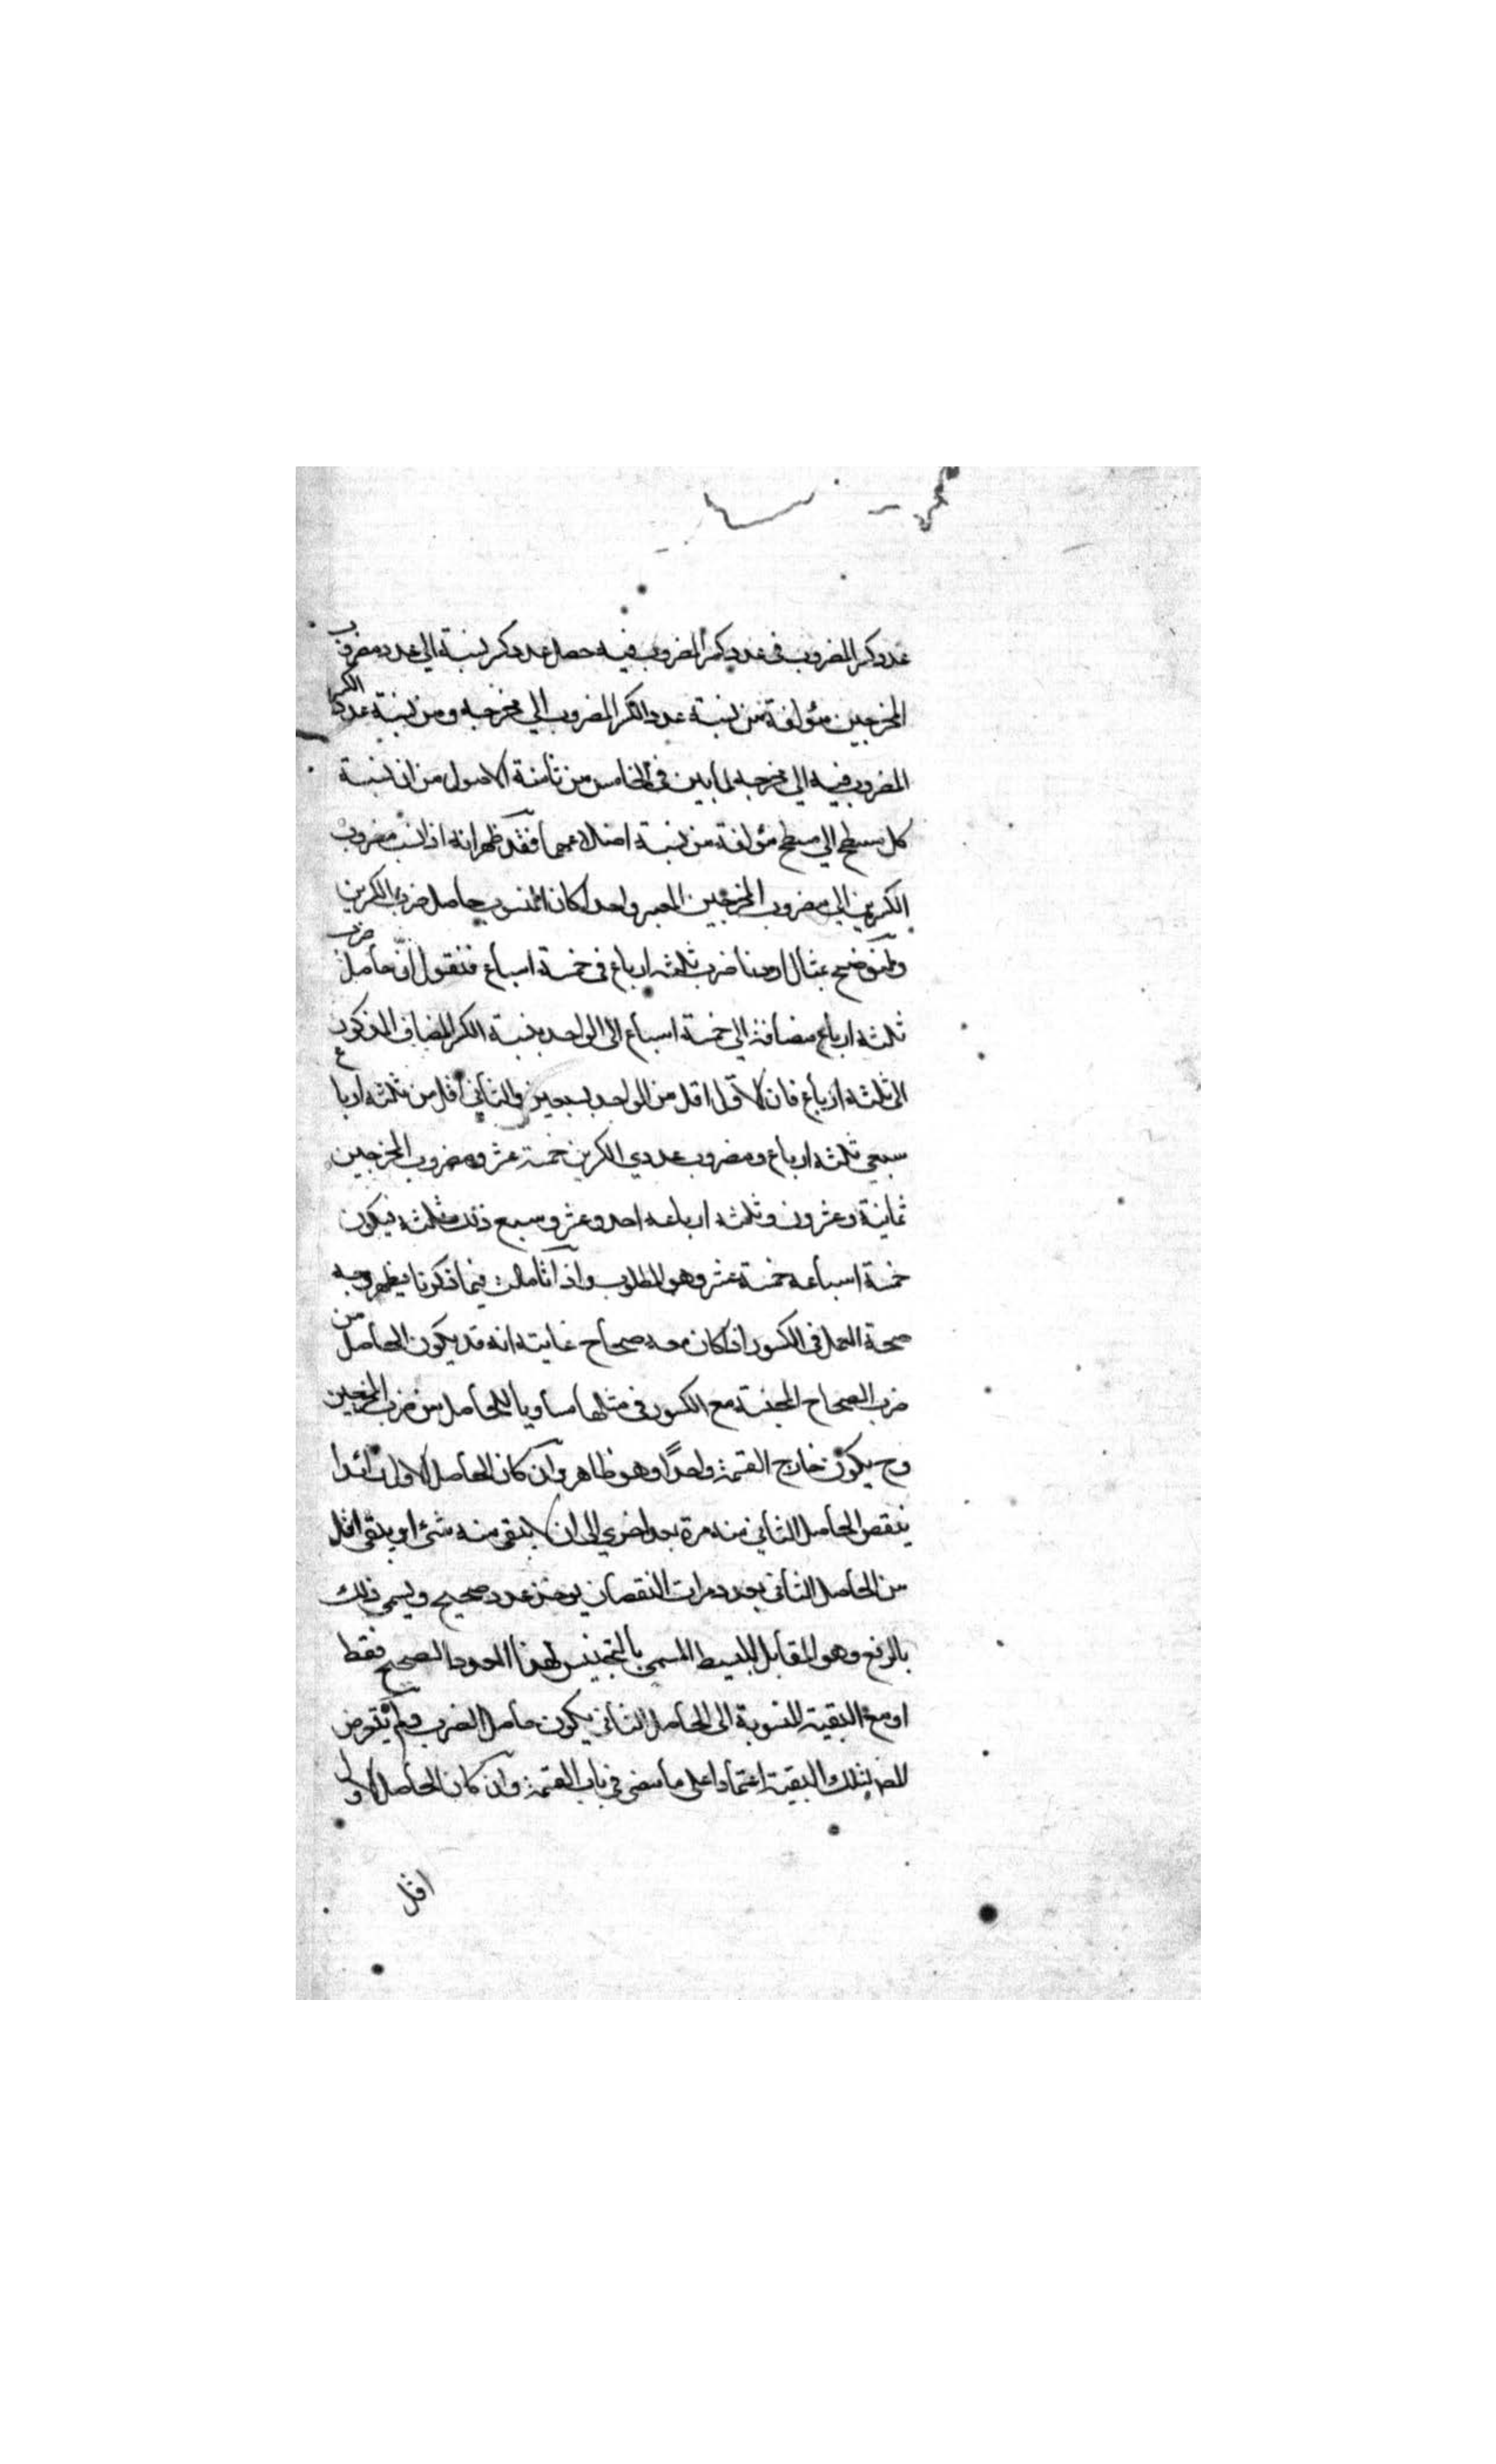 عدد كسر المضروب في عدد كسر المضروب فيه حصل عدد كسر نسبة الي عدد مضروب
المخرجين مؤلفة من نسبة عدد الكسر المضروب الي مخرجه ومن نسبة عدد الكسر
المضروب فيه الي مخرجه لما بين في الخامس من ثامنة الاصول من ان نسبة
كل مسطح الي مسطح مؤلفة من نسبة اضلاعهما فقد ظهر انه اذا نسب مضروب
الكسرين الي مضروب المخرجين المعبر واحدا كان المنسوب حاصل ضرب الكسرين
ولنوضح بمثال اردنا ضرب ثلثه ارباع في خمسة اسباع فنقول ان حاصل ضرب
ثلثه ارباع مضافة الي خمسة اسباع الي الواحد بنسبة الكسر المضاف المذكور
الى ثلثه ارباع فان الاول اقل من الواحد بسبعين والثاني اقل من ثلثه ارباع
سبعي ثلثه ارباع ومضروب عددي الكسرين خمسة عشر ومضروب المخرجين
ثمانية وعشرون وثلثه ارباعه احد وعشر وسبع ذلك ثلثه فيكون
خمسة اسباعه خمسة عشر وهو المطلوب واذا تأملت فيما ذكرنا يظهر وجه
صحة العمل في الكسور اذا كان معه صحاح غايته انه قد يكون الحاصل من
ضرب الصحاح المجنسة مع الكسور في مثلها مساويا للحاصل من ضرب المخرجين
وح يكون خارج القسمة واحدًا وهو ظاهر وان كان الحاصل الاول زائدا
ينقص الحاصل الثاني منه مرة بعد اخري الى ان لا يبقى منه شئ او يبقى اقل
من الحاصل الثاني بعدد مرات النقصان يوخذ عدد صحيح ويسمى ذلك
بالرفع وهو المقابل للبسط المسمى بالتجنيس فهذا العدد الصحيح فقط
او مع البقية المنسوبة الى الحاصل الثاني يكون حاصل الضرب ولم يتعرض
للمص لتلك البقية اعتمادا على ما مضى في باب القسمة وان كان الحاصل الاول
اقل